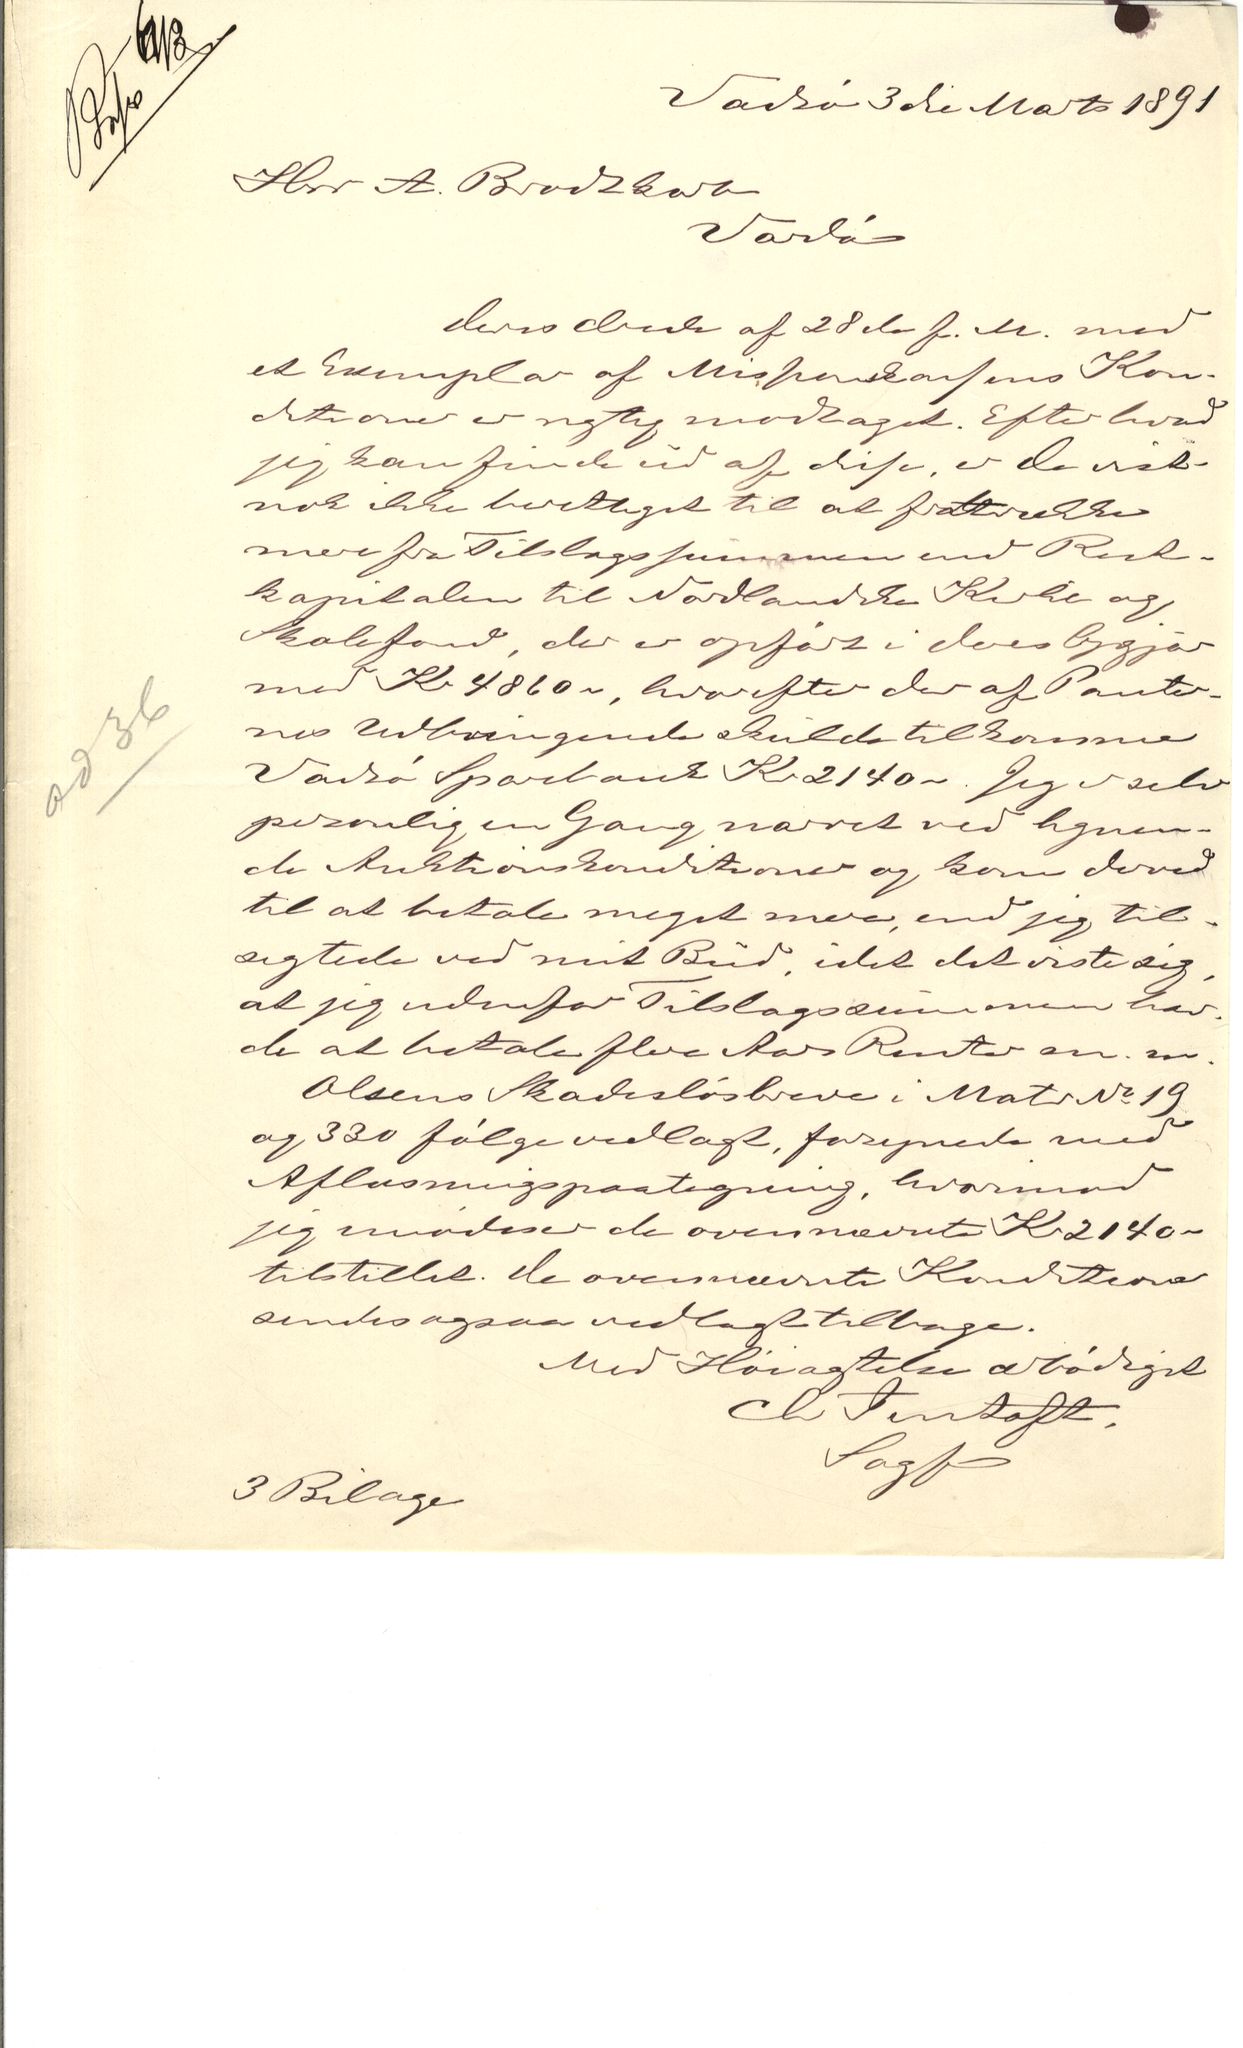 6/3
Vadsö 3die Marts 1891
Herr A. Brodtkorb
Vardö
Deres Brev af 28de f. M. med
et Exemplar af Kon-
ditioner er rigtig modtaget. Efter hvad
jeg kan finde ud af disse, er De vist-
nok ikke berettiget til at fratrække
mere fra Tilslagssummen end Rest-
kapitalen til Nordlandske Kirke og
Skolefond, der er opført i Deres Opgjør
med Kr 4860 –, hvorefter der af Panter-
nes Udbringende skulde tilkomme
Vadsö Sparebank Kr 2140 –. Jeg er selv
personlig en Gang narret ved lignen-
de Auktionskonditioner og kom derved
til at betale meget mere, end jeg til-
sigtede ved mit Bud, idet det viste sig,
at jeg udenfor Tilslagssummen hav-
de at betale flere Aars Renter m. m.
Olsens Skadesløsbreve i Matr No 19
og 330 følge vedlagt, forsynede med
Aflæsningspaategning, hvorimod
jeg imødeser de ovennævnte Kr 2140 –
tilstillet. De ovennævnte Konditioner
sendes ogsaa vedlagt tilbage.
Med Høiagtelse ærbødigst
Ch
Sagf
3 Bilage
ad 36